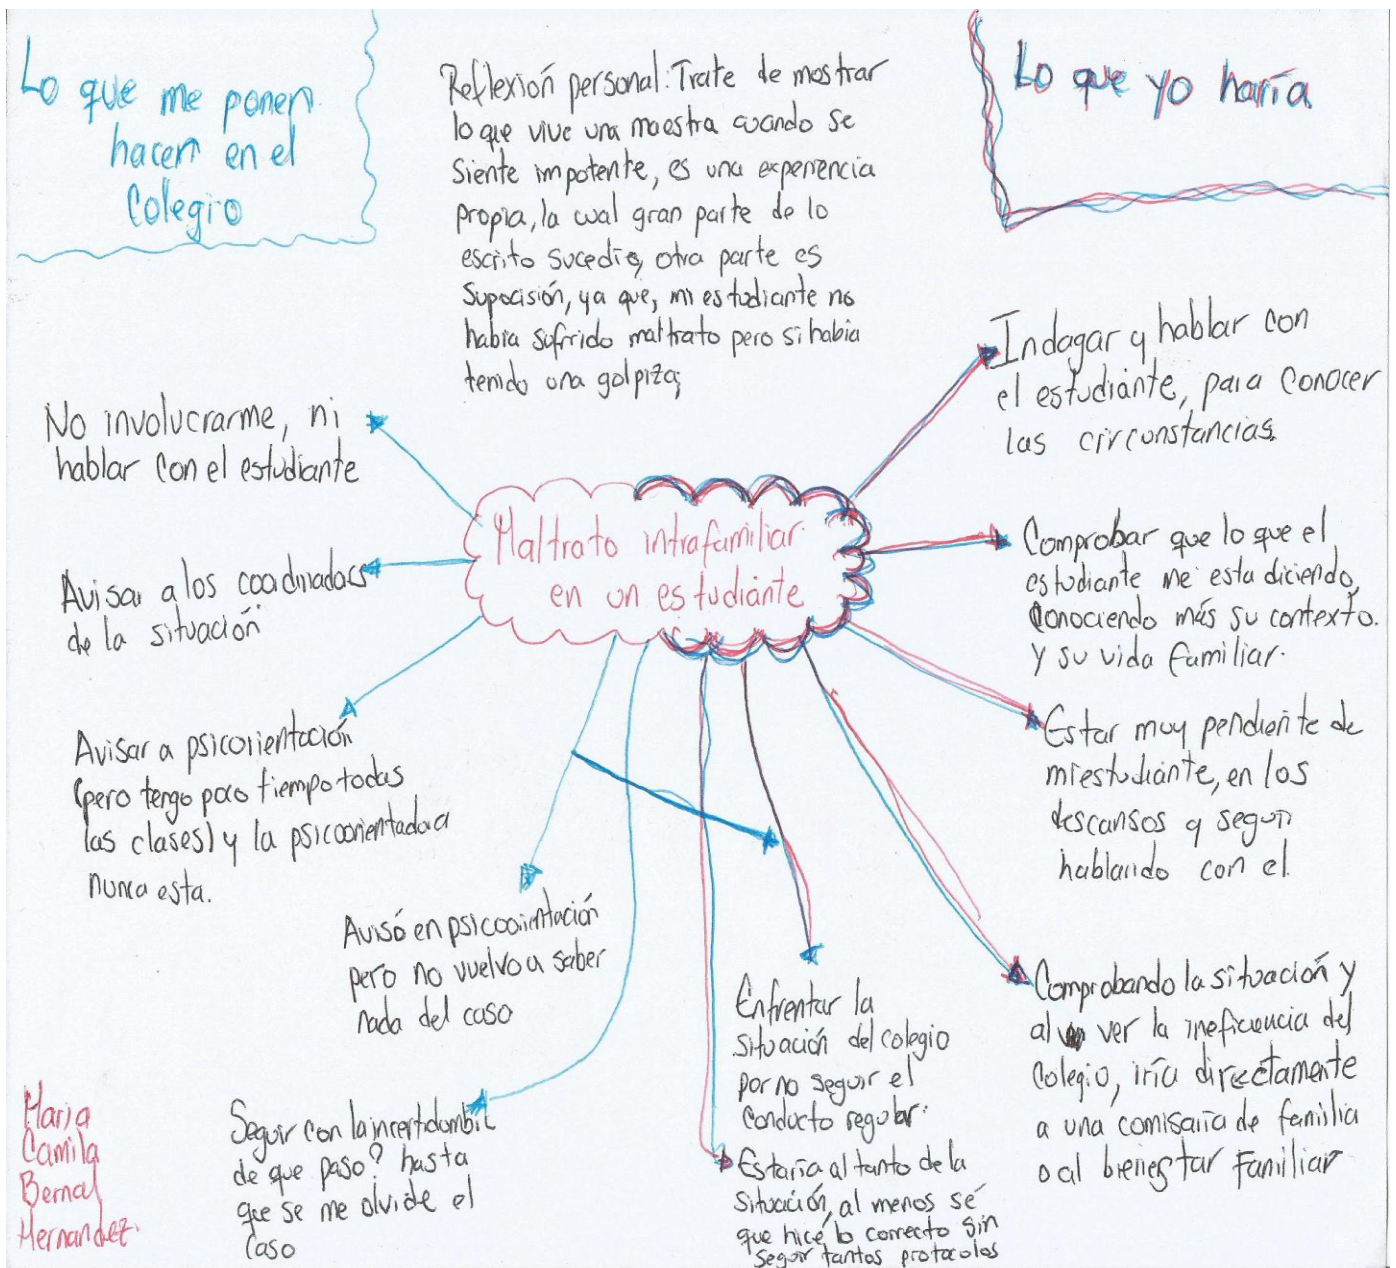 Lo que me ponen
hacer en el
Colegio
Reflexión personal: Trate de mostrar
lo que vive una maestra cuando se
siente impotente, es una experiencia
propia, la cual gran parte de lo
escrito sucedio, otra parte es
Suposición, ya que, mi estudiante no
habia sufrido maltrato pero si habia
tenido una golpiza;
Lo que yo haría
No involucrarme, ni
hablar con el estudiante
Avisar a los coordinadores
de la situación
Avisar a psicorientación
(pero tengo poco tiempo todas
las clases) y la psicoorientadora
nunca esta.
Avisó en psicoorientación
pero no vuelvo a saber
nada del caso
Seguir con la incertidumbre
de que paso? hasta
que se me olvide el
Caso
Maltrato intrafamiliar
en un estudiante
Indagar y hablar con
el estudiante, para conocer
las circunstancias.
Comprobar que lo que el
estudiante me esta diciendo,
Conociendo más su contexto.
y su vida familiar.
Estar muy pendiente de
mi estudiante, en los
descansos y seguir
hablando con el.
Comprobando la situación y
al ver la ineficiencia del
Colegio, iría directamente
a una comisaría de familia
o al bienestar Familiar
Enfrentar la
situación del colegio
por no seguir el
Conducto regular.
Estaría al tanto de la
situación, al menos sé
que hicé lo correcto sin
seguir tantos protocolos
Maria
Camila
Bernal
Hernandez.